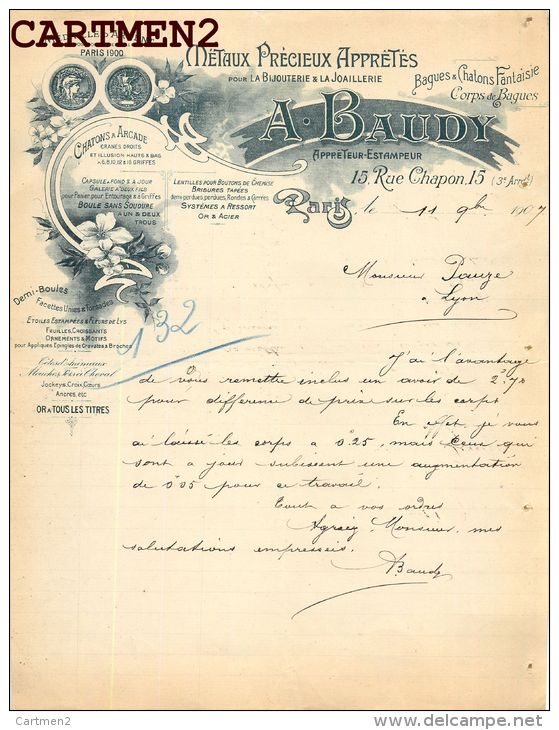 CARTMEN2
PARIS 1900
MÉTAUX PRÉCIEUX APPRÊTÉS
POUR LA BIJOUTERIE & LA JOAILLERIE
Bagues & Chatons Fantaisie
Corps de Bagues
A. BAUDY
APPRÊTEUR-ESTAMPEUR
15, RUE CHAPON, 15 (3e Arrt)
CHATONS & ARCADE
GRANES DROITS
ET ILLUSION HAUTS & BAS
A 6,8,10,12 & 16 GRIFFES
CAPSULE & FOND & A JOUR
GALERIE A DEUX FILS
pour Panier, pour Entourage & à Griffes
BOULE SANS SOUDURE
A UN & DEUX
TROUS
LENTILLES POUR BOUTONS DE CHEMISE
BRISURES TARÉES
demi perdues, perdues, Rondes & Carrées
SYSTÈMES A RESSORT
OR & ACIER
Paris, le 11 9bre 1907
Monsieur Pouze
a Lyon
Demi-Boules
Facettes Unies & Torsades
ETOILES ESTAMPÉES & FLEURS DE LYS
FEUILLES, CROISSANTS
ORNEMENTS & MOTIFS
pour Appliques, Epingles de Cravates & Broches
132
Têtes d'Animaux
Mouches, Fer à Cheval
Jockeys, Croix, Cœurs
Ancres, etc
OR A TOUS LES TITRES
J'ai l'avantage
de vous remettre inclus un avoir de 2f70
pour difference de prix sur les corps
En effet je vous
ai laissé les corps a 0.25, mais ceux qui
sont a jour subissent une augmentation
de 0f05 pour ce travail.
Tout a vos ordres
Agreez, Monsieur, mes
salutations empressées.
Baudy
Cartmen2
delcampe.net